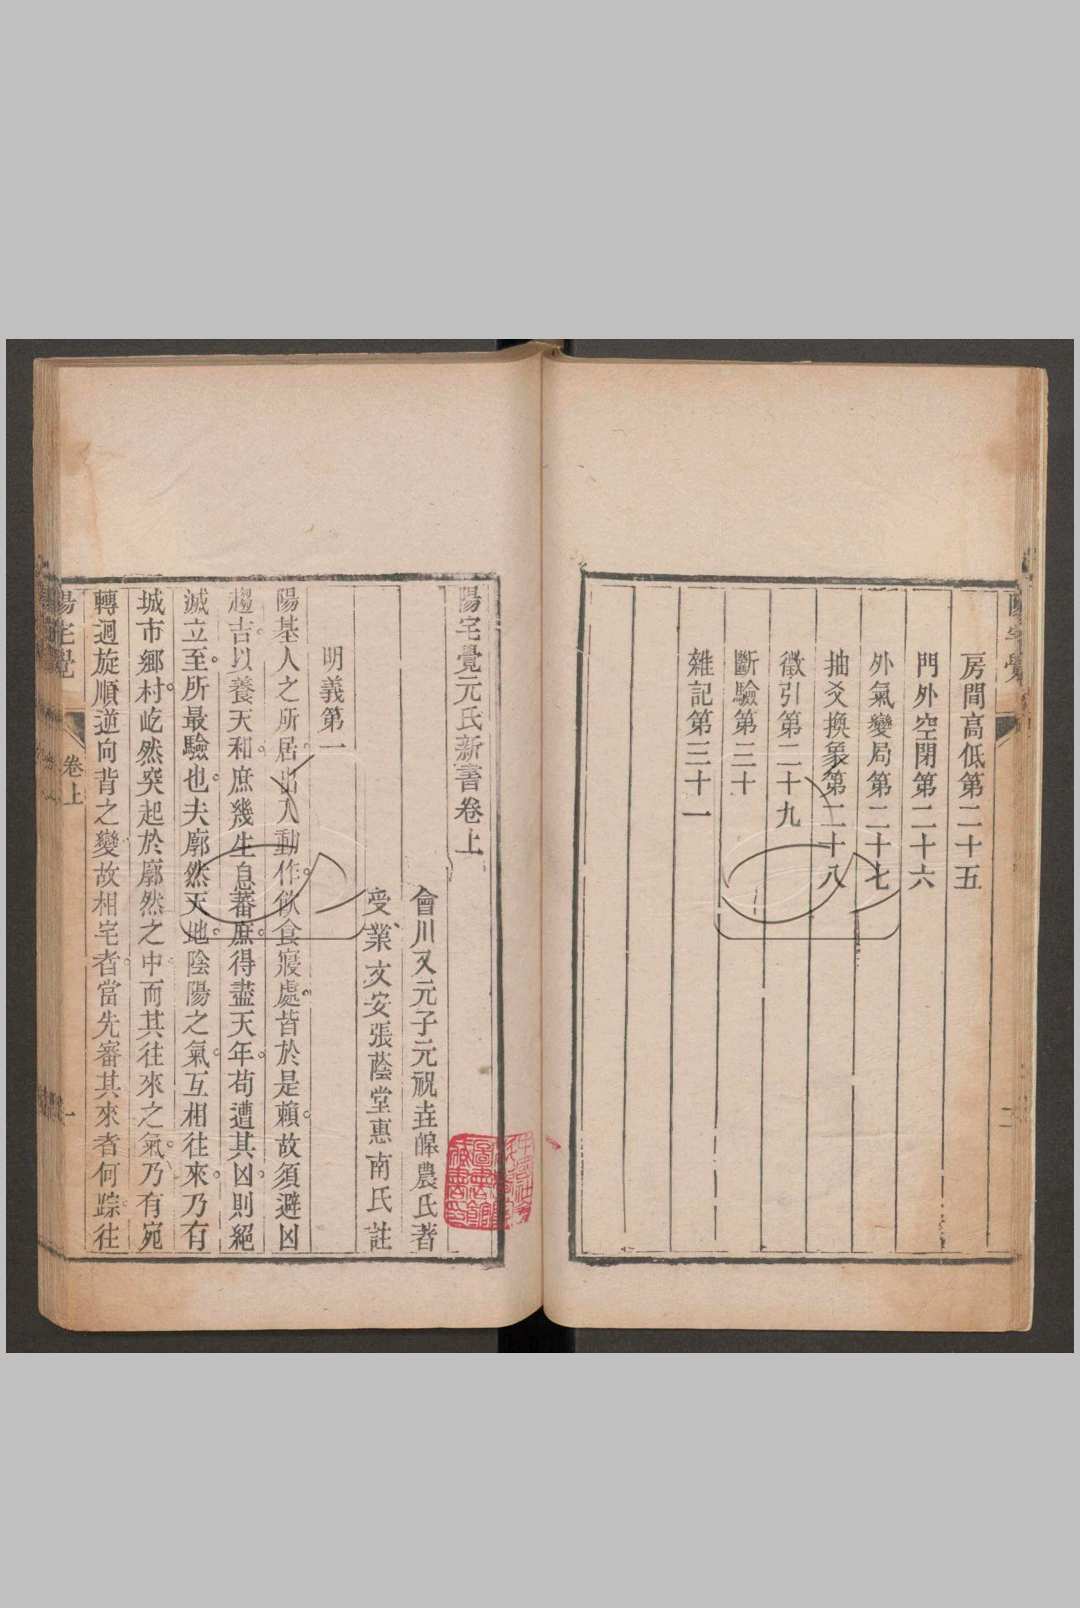 房間高低第二十五
門外空閉第二十六
外氣變局第二十七
抽爻換象第二十八
徵引第二十九
斷驗第三十
雜記第三十一
陽宅覺元氏新書卷上
會川又元子元祝垚皥農氏著
受業文安張蔭堂惠南氏註
明義第一
陽基人之所居出入動作。飲食寢處。皆於是賴。故須避凶
趨吉。以養天和。庶幾生息蕃庶。得盡天年。苟遭其凶。則絕
滅立至。所最驗也。夫廓然天地。陰陽之氣。互相往來。乃有
城市鄉村。屹然突起於廓然之中。而其往來之氣。乃有宛
轉迴旋順逆向背之變。故相宅者。當先審其來者何踪。往
陽宅覺
卷上
一